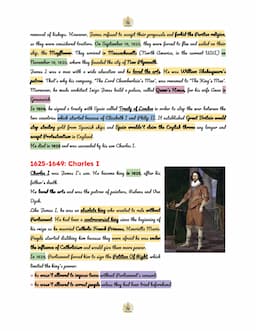 removal of bishops. However, James refused to accept their proposals and forbid the Puritan religion,
as they were considered traitors. On September 16, 1620, they were forced to flee and sailed on their
ship, the Mayflower. They arrived in Massachusetts (North America, in the current USA) on
November 16, 1620, where they founded the city of New Plymouth.
James I was a man with a wide education and he loved the arts. He was William Shakespeare's
patron. That's why his company, 'The Lord Chamberlain's Men', was renamed 'The King's Men'.
Moreover, he made architect Inigo Jones build a palace, called Queen's House, for his wife Anne in
Greenwich.
In 1604, he signed a treaty with Spain called Treaty of London in order to stop the war between the
two countries which started because of Elizabeth I and Philip II. It established Great Britain would
stop stealing gold from Spanish ships and Spain wouldn't claim the English throne any longer and
accept Protestantism in England.
He died in 1625 and was succeeded by his son Charles I.
1625-1649: Charles I
Charles I was James I's son. He became king in 1625, after his
father's death.
He loved the arts and was the patron of painters, Rubens and Van
Dyck.
Like James I, he was an absolute king who wanted to rule without
Parliament. He had been a controversial king since the beginning of
his reign as he married Catholic French Princess, Henrietta Maria.
People started disliking him because they were afraid he was under
the influence of Catholicism and would give them more power.
In 1628, Parliament forced him to sign the Petition Of Right which
limited the king's power:
- he wasn't allowed to impose taxes without Parliament's consent;
- he wasn't allowed to arrest people unless they had been tried beforehand;